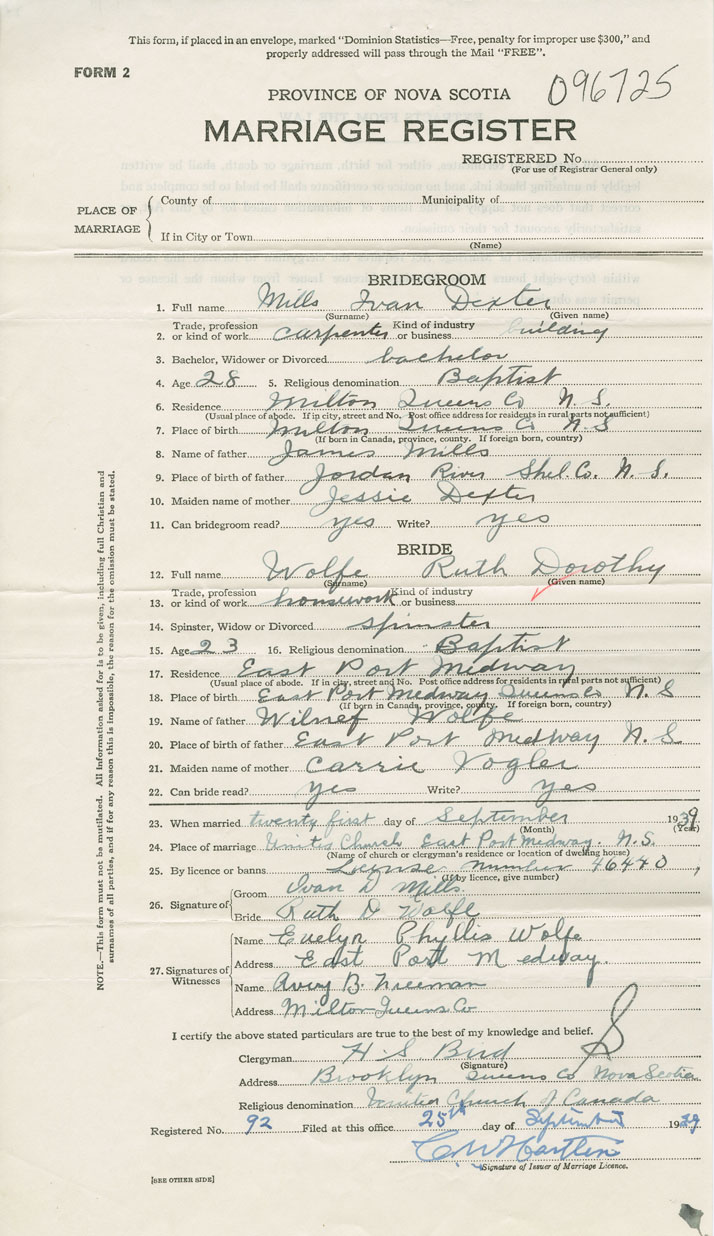 This form, if placed in an envelope, marked "Dominion Statistics—Free, penalty for improper use $300," and
properly addressed will pass through the Mail "FREE".
FORM 2
096725
PROVINCE OF NOVA SCOTIA
MARRIAGE REGISTER
REGISTERED No.
(For use of Registrar General only)
PLACE OF MARRIAGE
County of Municipality of
If in City or Town
(Name)
BRIDEGROOM
1. Full name Mills Ivan Dexter
(Surname) (Given name)
2. Trade, profession or kind of work carpenter Kind of industry or business building
3. Bachelor, Widower or Divorced bachelor
4. Age 28 5. Religious denomination Baptist
6. Residence Milton Queens Co N. S.
(Usual place of abode. If in city, street and No. Post office address for residents in rural parts not sufficient)
7. Place of birth Milton Queens Co N. S
(If born in Canada, province, county. If foreign born, country)
8. Name of father James Mills
9. Place of birth of father Jordan River Shel. Co. N. S.
10. Maiden name of mother Jessie Dexter
11. Can bridegroom read? yes Write? yes
BRIDE
12. Full name Wolfe Ruth Dorothy
(Surname) (Given name)
13. Trade, profession or kind of work housework Kind of industry or business
14. Spinster, Widow or Divorced spinster
15. Age 23 16. Religious denomination Baptist
17. Residence East Port Midway
(Usual place of abode. If in city, street and No. Post office address for residents in rural parts not sufficient)
18. Place of birth East Port Medway Queens Co N. S
(If born in Canada, province, county. If foreign born, country)
19. Name of father Wolfe
20. Place of birth of father East Port Medway N. S
21. Maiden name of mother Carrie Vogler
22. Can bride read? yes Write? yes
23. When married twenty first day of September 1939
(Month) (Year)
24. Place of marriage United Church East Port Medway. N. S.
(Name of church or clergyman's residence or location of dwelling house)
25. By licence or banns License number 46440,
(If by licence, give number)
26. Signature of
Groom Ivan D Mills.
Bride Ruth D Wolfe
27. Signatures of Witnesses
Name Evelyn Phyllis Wolfe
Address East Port Medway.
Name Avery B. Freeman
Address Milton Queens Co
I certify the above stated particulars are true to the best of my knowledge and belief.
Clergyman H S Bird
(Signature)
Address Brooklyn Queens Co Nova Scotia
Religious denomination United Church of Canada
Registered No. 92 Filed at this office 25th day of September 1939
Signature of Issuer of Marriage Licence.
[SEE OTHER SIDE]
NOTE.—This form must not be mutilated. All information asked for is to be given, including full Christian and
surnames of all parties, and if for any reason this is impossible, the reason for the omission must be stated.